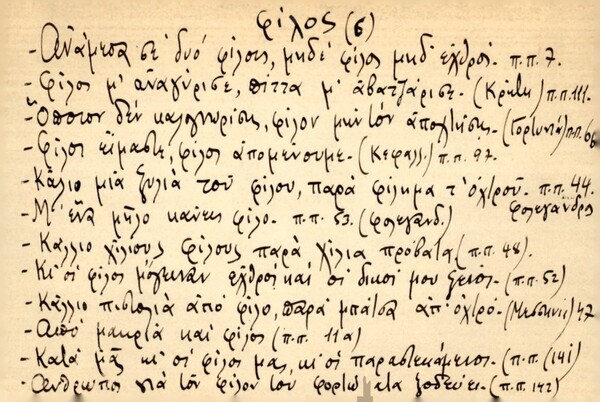 φίλος (6)
- Ἀνάμεσα σὲ δυό φίλους, μηδέ φίλος μηδ' ἐχθρός. π.π. 7.
- Φίλος μ' ἀναγύρισε, πίττα μ' ἀβατζάρισε. (Κρήτη) π.π. 111.
- Ὅποιον δέν καλογνωρίσης, φίλον μήν τόν ἀποχτήσης. (Γορτυνία) π.π. 66
- Φίλοι εἴμαστε, φίλοι ἀπομένουμε. (Κεφαλλ.) π.π. 97.
- Κάλλιο μιά ξυλιά τοῦ φίλου, παρά φίλημα τ' ὀχτροῦ. π.π. 44.
Φολέγανδρος
- Μ' ἕνα μῆλο κάνεις φίλο. π.π. 53. (Φολεγανδ.)
- Κάλλιο χίλιους φίλους παρά χίλια πρόβατα (π.π. 48).
- Κι' οἱ φίλοι μόγιναν ἐχθροί καί οἱ δικοί μου ξένοι. (π.π. 52)
- Κάλλιο πιστολιά ἀπό φίλο, παρά μπάτσα ἀπ' ὀχτρό. (Μεσσηνία) 47
- Ἀπό μακριά καί φίλοι (π.π. 11α)
- Κατά μᾶς κι' οἱ φίλοι μας, κι' οἱ παραστεκάμενοι. (π.π. (141)
- Ἄνθρωπος γιά τόν φίλον του φορτώ τα ξοδεύει. (π.π. 142)